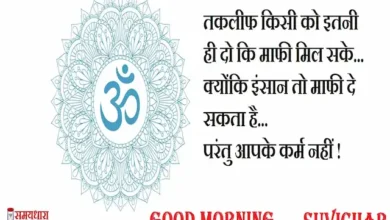 तकलीफ किसी को इतनी
ही दो कि माफी मिल सके...
क्योंकि इंसान तो माफी दे
सकता है...
परंतु आपके कर्म नहीं !
ॐ
समयधारा
GOOD MORNING SUVICHAR